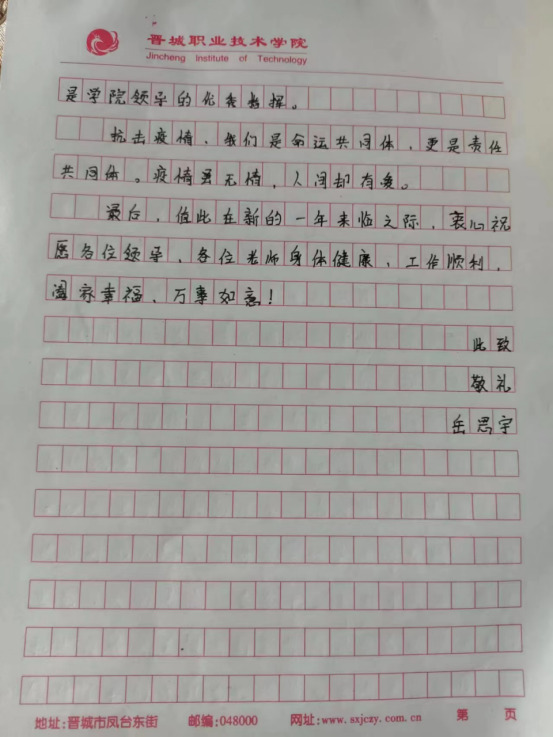 晋城职业技术学院
Jincheng Institute of Technology
是学院领导的优秀指挥。
抗击疫情、我们是命运共同体，更是责任
共同体。疫情虽无情，人间却有爱。
最后，值此在新的一年来临之际，衷心祝
愿各位领导、各位老师身体健康、工作顺利，
阖家幸福、万事如意！
此致
敬礼
岳思宇
地址:晋城市凤台东街 邮编:048000 网址:www.sxjczy.com.cn 第 页